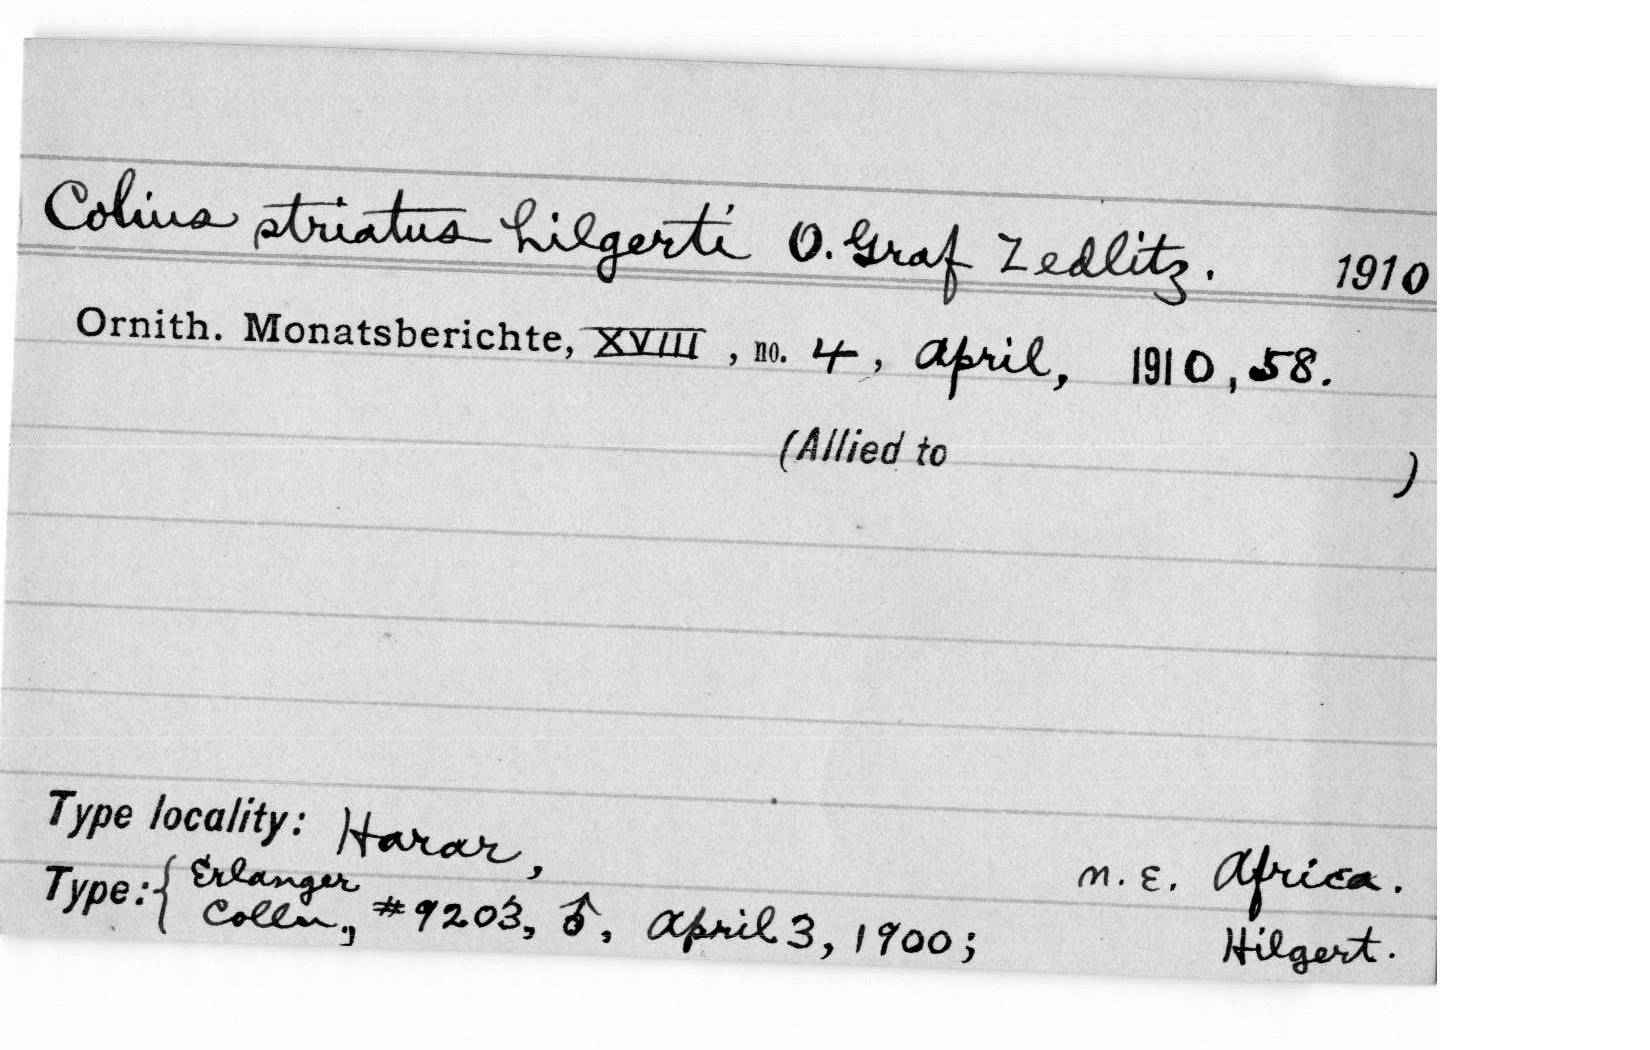 Colius striatus hilgerti O. Graf Zedlitz. 1910
Ornith. Monatsberichte, XVIII, no. 4, April, 1910, 58.
(Allied to )
Type locality: Harar, N. E. Africa.
Type: { Erlanger Colln., #9203, ♂, April 3, 1900; Hilgert.